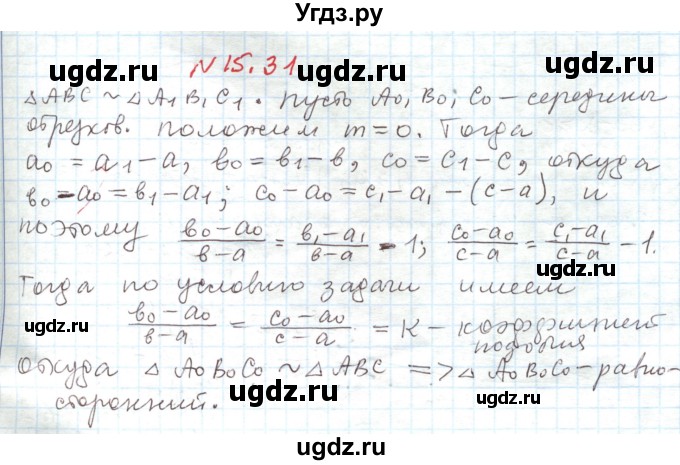 Угдз.ру
ugdz.ru ugdz.ru
№ 15.31
△ABC ~ △A₁B₁C₁. Пусть A₀, B₀; C₀ – середины
отрезков. положем m = 0. Тогда
a₀ = a₁ – a, в₀ = в₁ – в, c₀ = c₁ – c, откуда
в₀ – a₀ = в₁ – a₁; c₀ – a₀ = c₁ – a₁ – (c – a), и
ugdz.ru ugdz.ru
поэтому (в₀ – a₀)/(в – a) = (в₁ – a₁)/(в – a) – 1; (c₀ – a₀)/(c – a) = (c₁ – a₁)/(c – a) – 1.
Тогда по условию задачи имеем
ugdz.ru ugdz.ru
(в₀ – a₀)/(в – a) = (c₀ – a₀)/(c – a) = K – коэффициент
подобия
откуда △ A₀B₀C₀ ~ △ ABC => △ A₀B₀C₀ – равно-
сторонний.
ugdz.ru ugdz.ru
ugdz.ru